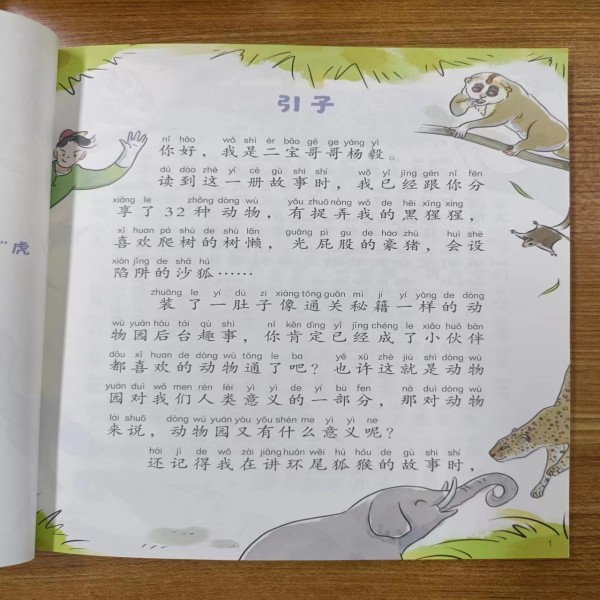 引子
nǐ hǎo wǒ shì èr bǎo gē ge yáng yì
你好，我是二宝哥哥杨毅。
dú dào zhè yí cè gù shi shí wǒ yǐ jīng gēn nǐ fēn
读到这一册故事时，我已经跟你分
xiǎng le zhǒng dòng wù yǒu zhuō nòng wǒ de hēi xīng xing
享了32种动物，有捉弄我的黑猩猩，
xǐ huan pá shù de shù lǎn guāng pì gu de háo zhū huì shè
喜欢爬树的树懒，光屁股的豪猪，会设
xiàn jǐng de shā hú
陷阱的沙狐……
zhuāng le yí dù zi xiàng tōng guān mì jí yí yàng de dòng
装了一肚子像通关秘籍一样的动
wù yuán hòu tái qù shì nǐ kěn dìng yǐ jīng chéng le xiǎo huǒ bàn
物园后台趣事，你肯定已经成了小伙伴
dōu xǐ huan de dòng wù tōng le ba yě xǔ zhè jiù shì dòng wù
都喜欢的动物通了吧？也许这就是动物
yuán duì wǒ men rén lèi yì yì de yí bù fen nà duì dòng wù
园对我们人类意义的一部分，那对动物
lái shuō dòng wù yuán yòu yǒu shén me yì yì ne
来说，动物园又有什么意义呢？
hái jì de wǒ zài jiǎng huán wěi hú hóu de gù shi shí
还记得我在讲环尾狐猴的故事时，
1
”虎